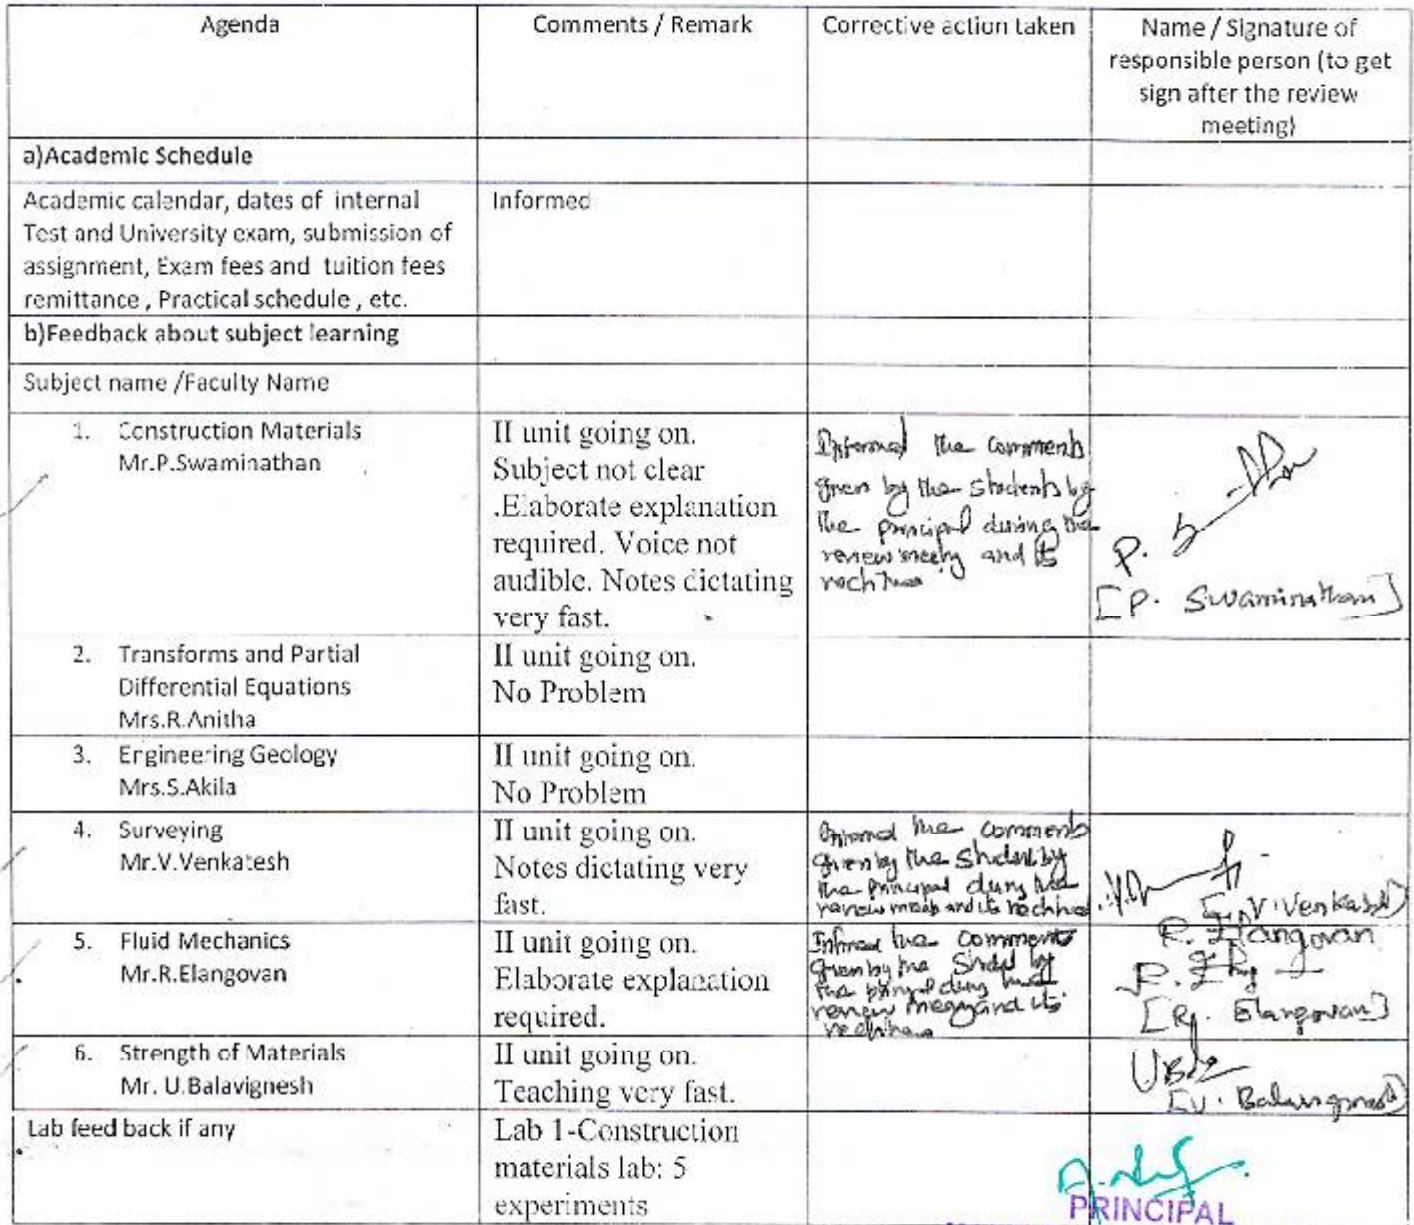 Agenda
Comments / Remark
Corrective action taken
Name / Signature of
responsible person (to get
sign after the review
meeting)
a)Academic Schedule
Academic calendar, dates of internal
Test and University exam, submission of
assignment, Exam fees and tuition fees
remittance , Practical schedule , etc.
Informed
b)Feedback about subject learning
Subject name /Faculty Name
1. Construction Materials
Mr.P.Swaminathan
II unit going on.
Subject not clear
.Elaborate explanation
required. Voice not
audible. Notes dictating
very fast.
Informed the comments
given by the students by
the principal during the
review meeting and its
P. S
[P. Swaminathan]
2. Transforms and Partial
Differential Equations
Mrs.R.Anitha
II unit going on.
No Problem
3. Engineering Geology
Mrs.S.Akila
II unit going on.
No Problem
4. Surveying
Mr.V.Venkatesh
II unit going on.
Notes dictating very
fast.
Informed the comments
given by the student by
the principal during the
review meeting and its
[V.Venkatesh]
5. Fluid Mechanics
Mr.R.Elangovan
II unit going on.
Elaborate explanation
required.
Informed the comments
given by the student by
the principal during the
review meeting and its
R. Elangovan
[R. Elangovan]
6. Strength of Materials
Mr. U.Balavignesh
II unit going on.
Teaching very fast.
[U. Balavignesh]
Lab feed back if any
Lab 1-Construction
materials lab: 5
experiments
PRINCIPAL